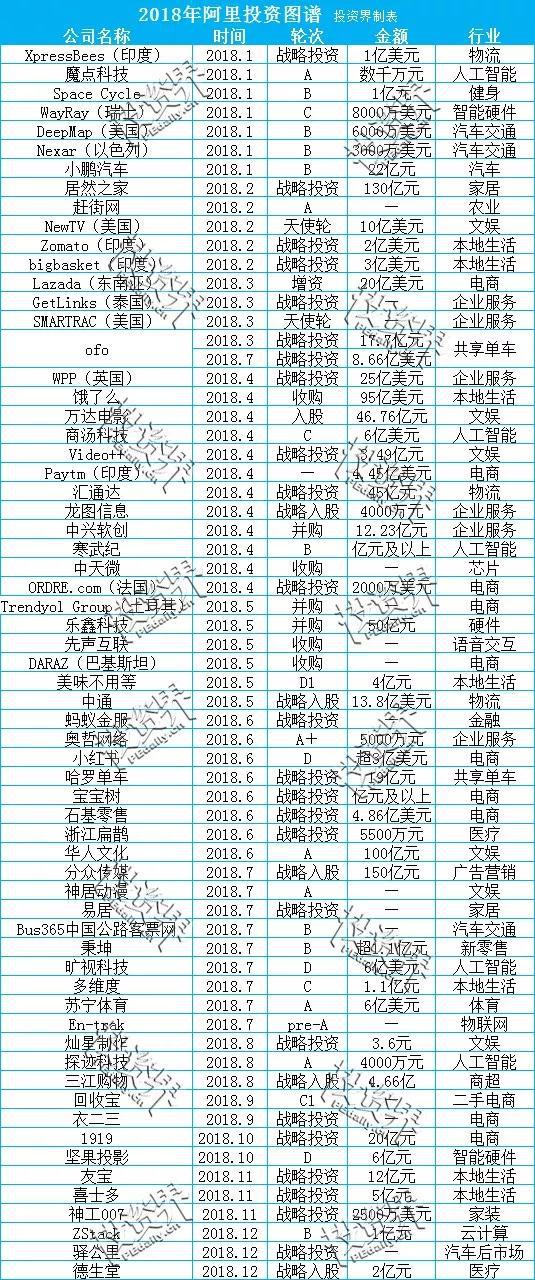 2018年阿里投资图谱 投资界制表
公司名称 时间 轮次 金额 行业
XpressBees（印度） 2018.1 战略投资 1亿美元 物流
魔点科技 2018.1 A 数千万元 人工智能
Space Cycle 2018.1 B 1亿元 健身
WayRay（瑞士） 2018.1 C 8000万美元 智能硬件
DeepMap（美国） 2018.1 B 6000万美元 汽车交通
Nexar（以色列） 2018.1 B 3000万美元 汽车交通
小鹏汽车 2018.1 B 22亿元 汽车
居然之家 2018.2 战略投资 130亿元 家居
赶街网 2018.2 A — 农业
NewTV（美国） 2018.2 天使轮 10亿美元 文娱
Zomato（印度） 2018.2 战略投资 2亿美元 本地生活
bigbasket（印度） 2018.2 战略投资 3亿美元 本地生活
Lazada（东南亚） 2018.3 增资 20亿美元 电商
GetLinks（泰国） 2018.3 战略投资 — 企业服务
SMARTRAC（美国） 2018.3 天使轮 — 企业服务
ofo 2018.3 战略投资 17.7亿元 共享单车
2018.7 战略投资 8.66亿美元
WPP（英国） 2018.4 战略投资 25亿美元 企业服务
饿了么 2018.4 收购 95亿美元 本地生活
万达电影 2018.4 入股 46.76亿元 文娱
商汤科技 2018.4 C 6亿美元 人工智能
Video++ 2018.4 战略投资 3.49亿元 文娱
Paytm（印度） 2018.4 — 4.45亿美元 电商
汇通达 2018.4 战略投资 45亿元 物流
龙图信息 2018.4 战略入股 4000万元 企业服务
中兴软创 2018.4 并购 12.23亿元 企业服务
寒武纪 2018.4 B 亿元及以上 人工智能
中天微 2018.4 收购 — 芯片
ORDRE.com（法国） 2018.4 战略投资 2000万美元 电商
Trendyol Group（土耳其） 2018.5 并购 — 电商
乐鑫科技 2018.5 并购 50亿元 硬件
先声互联 2018.5 收购 — 语音交互
DARAZ（巴基斯坦） 2018.5 收购 — 电商
美味不用等 2018.5 D1 4亿元 本地生活
中通 2018.5 战略入股 13.8亿美元 物流
蚂蚁金服 2018.6 战略投资 — 金融
奥哲网络 2018.6 A+ 5000万元 企业服务
小红书 2018.6 D 超3亿美元 电商
哈罗单车 2018.6 战略投资 19亿元 共享单车
宝宝树 2018.6 战略投资 亿元及以上 电商
石基零售 2018.6 战略投资 4.86亿美元 电商
浙江扁鹊 2018.6 战略投资 5500万元 医疗
华人文化 2018.6 A 100亿元 文娱
分众传媒 2018.7 战略入股 150亿元 广告营销
神居动漫 2018.7 A — 文娱
易居 2018.7 战略投资 — 家居
Bus365中国公路客票网 2018.7 B — 汽车交通
秉坤 2018.7 B 超1.1亿元 新零售
旷视科技 2018.7 D 6亿美元 人工智能
多维度 2018.7 C 1.1亿元 本地生活
苏宁体育 2018.7 A 6亿美元 体育
En-trak 2018.7 pre-A — 物联网
灿星制作 2018.8 战略投资 3.6元 文娱
探迹科技 2018.8 A 4000万元 人工智能
三江购物 2018.8 战略入股 4.66亿 商超
回收宝 2018.9 C1 — 二手电商
衣二三 2018.9 战略投资 — 电商
1919 2018.10 战略投资 20亿元 电商
坚果投影 2018.10 D 6亿元 智能硬件
友宝 2018.11 战略投资 12亿元 本地生活
喜士多 2018.11 战略投资 5亿元 本地生活
神工007 2018.11 战略投资 2500万美元 家装
ZStack 2018.12 B 1亿元 云计算
驿公里 2018.12 战略投资 — 汽车后市场
德生堂 2018.12 战略入股 2亿元 医疗